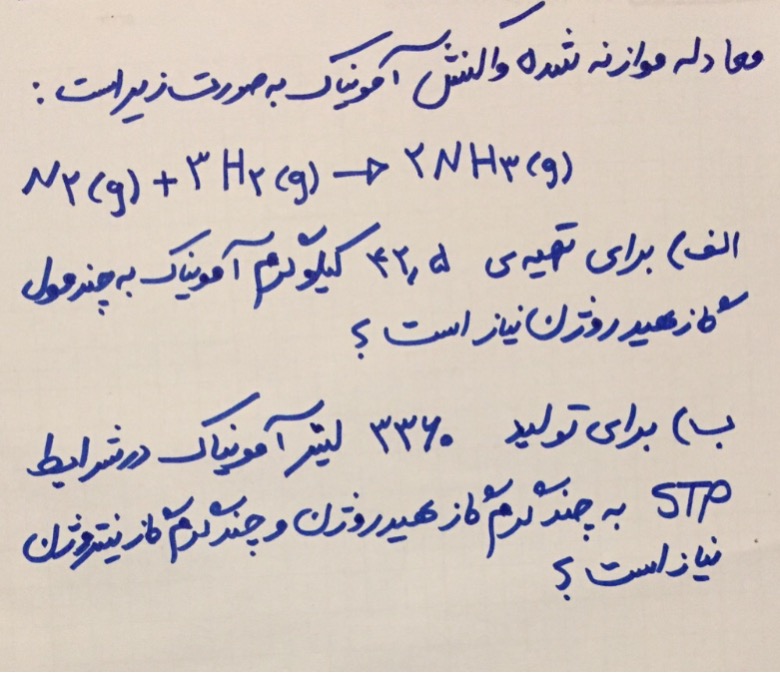 معادله موازنه شده واکنش آمونیاک به صورت زیر است :
N۲(g) + ۳H۲(g) → ۲NH۳(g)
الف) برای تهیه ی ۴۲,۵ کیلوگرم آمونیاک به چند مول
گاز هیدروژن نیاز است ؟
ب) برای تولید ۳۳۶۰ لیتر آمونیاک در شرایط
STP به چند گرم گاز هیدروژن و چند گرم گاز نیتروژن
نیاز است ؟